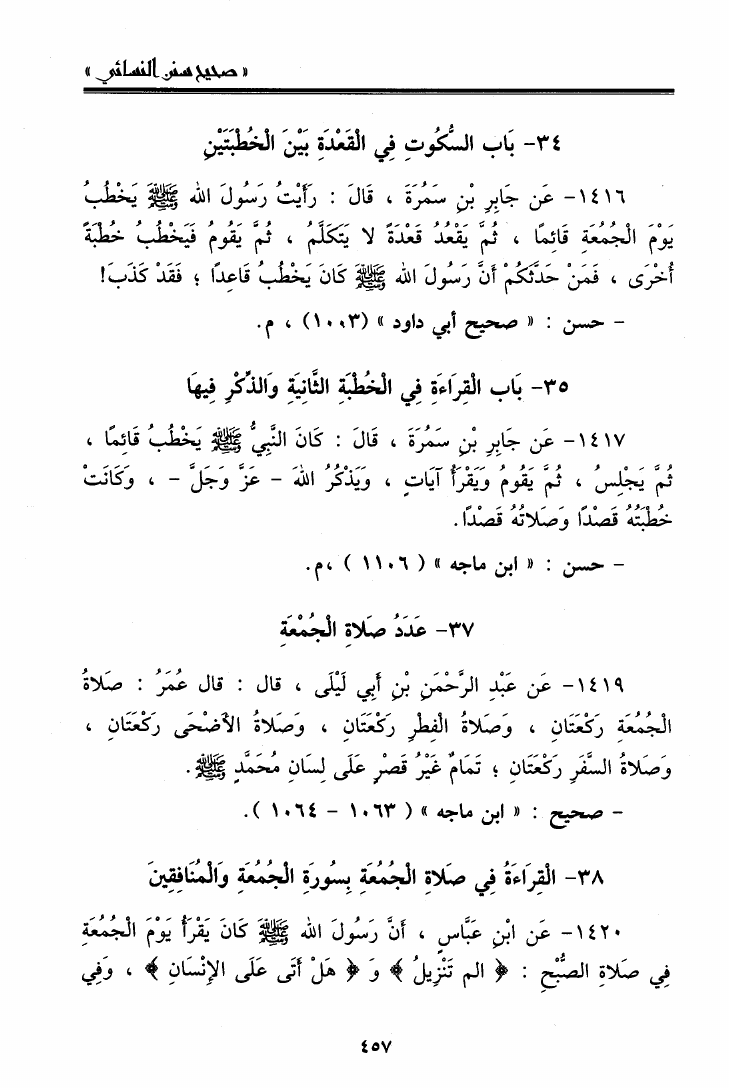 « صحيح سنن النسائي »
٣٤- بَاب السُّكُوتِ فِي الْقَعْدَةِ بَيْنَ الْخُطْبَتَيْنِ
١٤١٦- عَن جَابِرِ بْنِ سَمُرَةَ ، قَالَ : رَأَيْتُ رَسُولَ الله ﷺ يَخْطُبُ
يَوْمَ الْجُمُعَةِ قَائِمًا ، ثُمَّ يَقْعُدُ قَعْدَةً لا يَتَكَلَّمُ ، ثُمَّ يَقُومُ فَيَخْطُبُ خُطْبَةً
أُخْرَى ، فَمَنْ حَدَّثَكُمْ أَنَّ رَسُولَ الله ﷺ كَانَ يَخْطُبُ قَاعِدًا ؛ فَقَدْ كَذَبَ!
- حسن : « صحيح أبي داود » (١٠٠٣) ، م.
٣٥- بَاب الْقِرَاءَةِ فِي الْخُطْبَةِ الثَّانِيَةِ وَالذِّكْرِ فِيهَا
١٤١٧- عَن جَابِرِ بْنِ سَمُرَةَ ، قَالَ : كَانَ النَّبِيُّ ﷺ يَخْطُبُ قَائِمًا ،
ثُمَّ يَجْلِسُ ، ثُمَّ يَقُومُ وَيَقْرَأُ آيَاتٍ ، وَيَذْكُرُ اللهَ - عَزَّ وَجَلَّ - ، وَكَانَتْ
خُطْبَتُهُ قَصْدًا وَصَلاتُهُ قَصْدًا.
- حسن : « ابن ماجه » ( ١١٠٦ ) ،م.
٣٧- عَدَدُ صَلاةِ الْجُمُعَةِ
١٤١٩- عَن عَبْدِ الرَّحْمَنِ بْنِ أَبِي لَيْلَى ، قال : قال عُمَرُ : صَلاةُ
الْجُمُعَةِ رَكْعَتَانِ ، وَصَلاةُ الْفِطْرِ رَكْعَتَانِ ، وَصَلاةُ الأَضْحَى رَكْعَتَانِ ،
وَصَلاةُ السَّفَرِ رَكْعَتَانِ ؛ تَمَامٌ غَيْرُ قَصْرٍ عَلَى لِسَانِ مُحَمَّدٍ ﷺ.
- صحيح : « ابن ماجه » ( ١٠٦٣ - ١٠٦٤ ).
٣٨- الْقِرَاءَةُ فِي صَلاةِ الْجُمُعَةِ بِسُورَةِ الْجُمُعَةِ وَالْمُنَافِقِينَ
١٤٢٠- عَن ابْنِ عَبَّاسٍ ، أَنَّ رَسُولَ الله ﷺ كَانَ يَقْرَأُ يَوْمَ الْجُمُعَةِ
فِي صَلاةِ الصُّبْحِ : ﴿ الم تَنْزِيلُ ﴾ وَ ﴿ هَلْ أَتَى عَلَى الإِنْسَانِ ﴾ ، وَفِي
٤٥٧